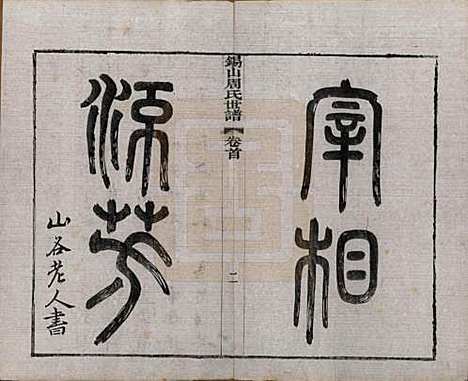 宰相
錫山周氏世譜 卷首 二
流芳
山谷老人書